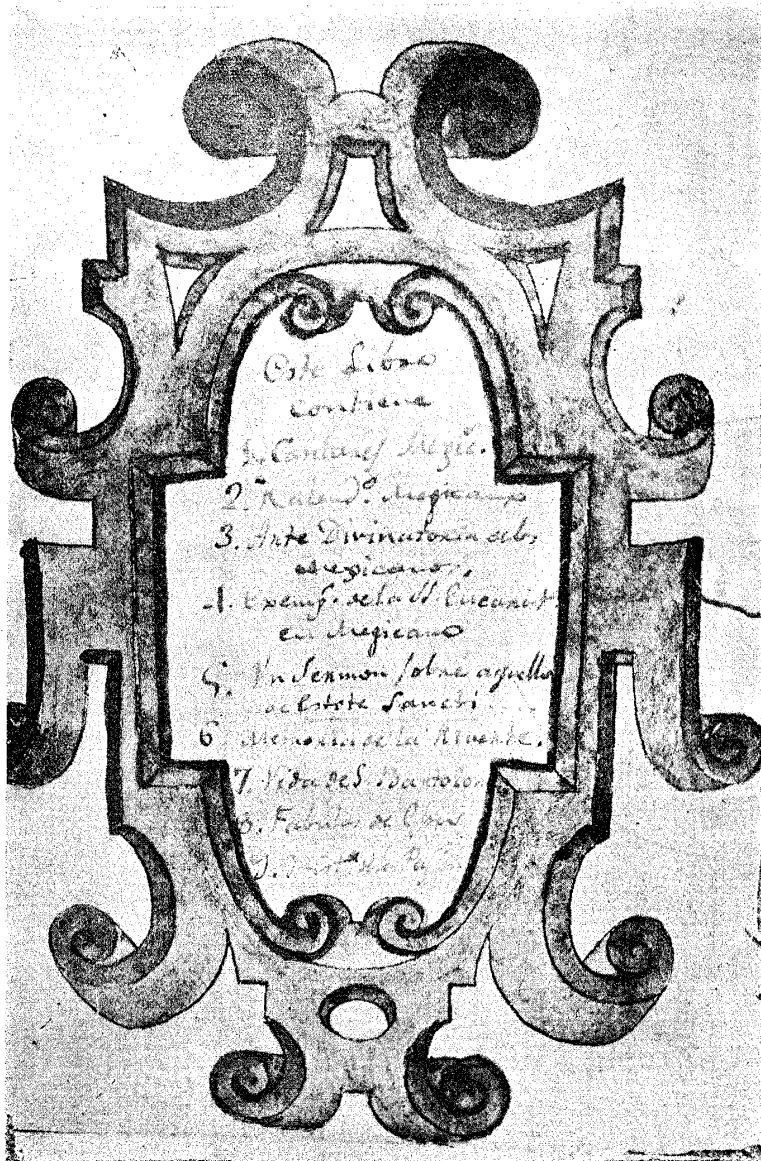 Este Libro
contiene
1. Cantares Megic.
2. Kalend.º Megicano
3. Arte Divinatoria de los
Megicanos.
4. Exemp. de la SS. Eucarist.
en Megicano
5. Vn Sermon sobre aquello
de Estote Sancti
6 Memoria de la Muerte.
7. Vida de S. Bartolo
8. Fabulas de
9.